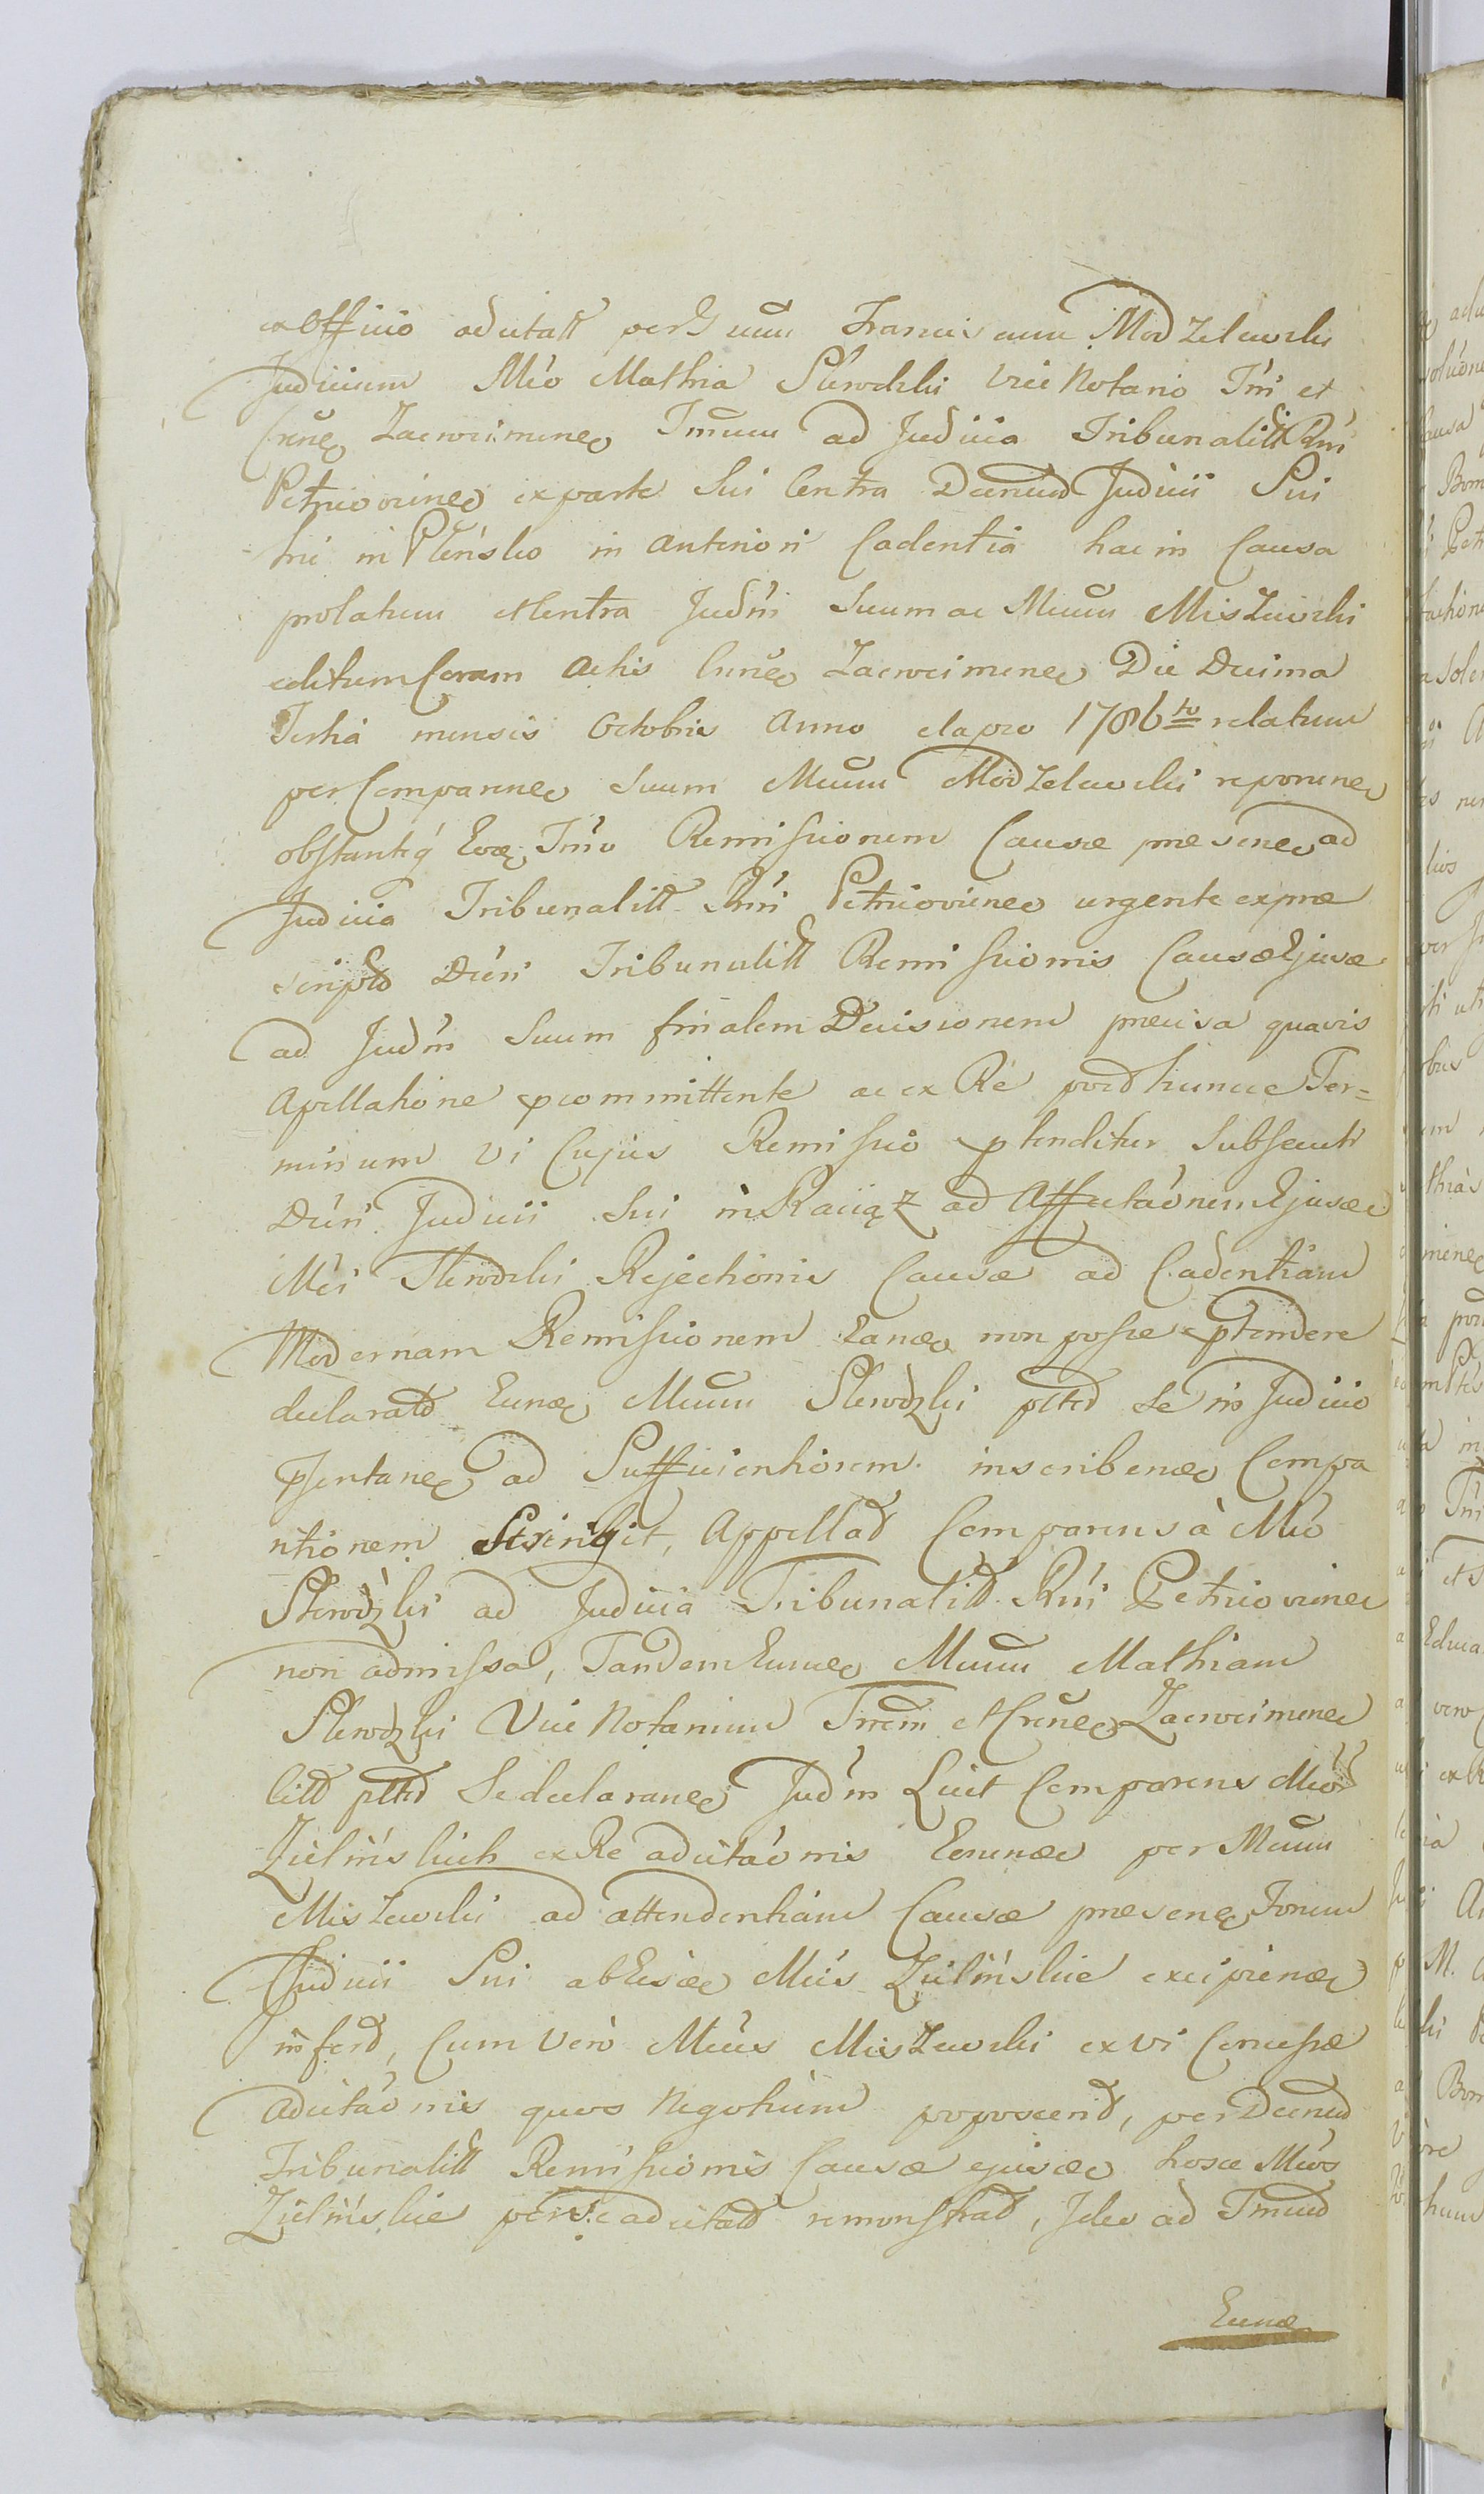 ex Officio adcitatt per Gnum Franciscum Modzelewski
Judicium Mco Mathia Sterodzki Vice Notario Tri et
Crene Zacrocimene Tmum ad Judicia Tribunalitt Rni
Petricoviene ex parte Sui Contra Decretum Judicii Sui
hic in Płońsko in Anteriori Cadentia hac in Causa
prolatum et Contra Judm Suum ac Mcum Miszewski
editum Coram Actis Crene Zacrocimene Die Decima
Tertia mensis Octobris Anno elapso 1786to relatum
per Comparene Suum Mcum Modzelewski reponene
obstanteq Eoe Tmo Remissionem Causæ præsene ad
Judicia Tribunalitt Rni Petricoviene urgente ex præ
scripto Dcri Tribunalitt Remissionis Causæ Ejusæ
ad Judm Suum finalem Decisionem præcisa quavis
Apellatione committente ac ex Re hunce Ter=
minum vi Cujus Remissio ptenditur Subsecuti
Dcri Judicii Sui in Raciąż ad Affectaonem Ejusæ
Mci Sterodzki Rejectionis Causæ ad Cadentiam
Modernam Remissionem Eanæ non posse ptendere
declaratt Eunæ Mcum Sterodzki se in Judicio
psentane ad Sufficientiorem inscribenæ Compa
ritionem Stringit, Appellað Comparens à Mco
Sterodzki ad Judicia Tribunalitt Rni Petricoviene
non admissa, Tandem Eunæ Mcum Mathiam
Sterodzki Vice Notarium Trem et Crene Zacrocimene
Se declarane Judm Lucit Comparens Mcor
Zielińskich ex Re adcitaonis Eorunæ per Mcum
Miszewski ad attendentiam Causæ præsene Forum
Judicii Sui ab Eisæ Mcis Zielińskie excipienæ
infert, Cum vero Mcus Miszewski ex vi Concessæ
Adcitaonis quos Negotium poposcerit, per Decretum
Tribunalitt Remissionis Causæ ejusæ hosce Mcos
Zielińskie per se adcitatt remonstrat, Ideo ad Tmum
Eunæ